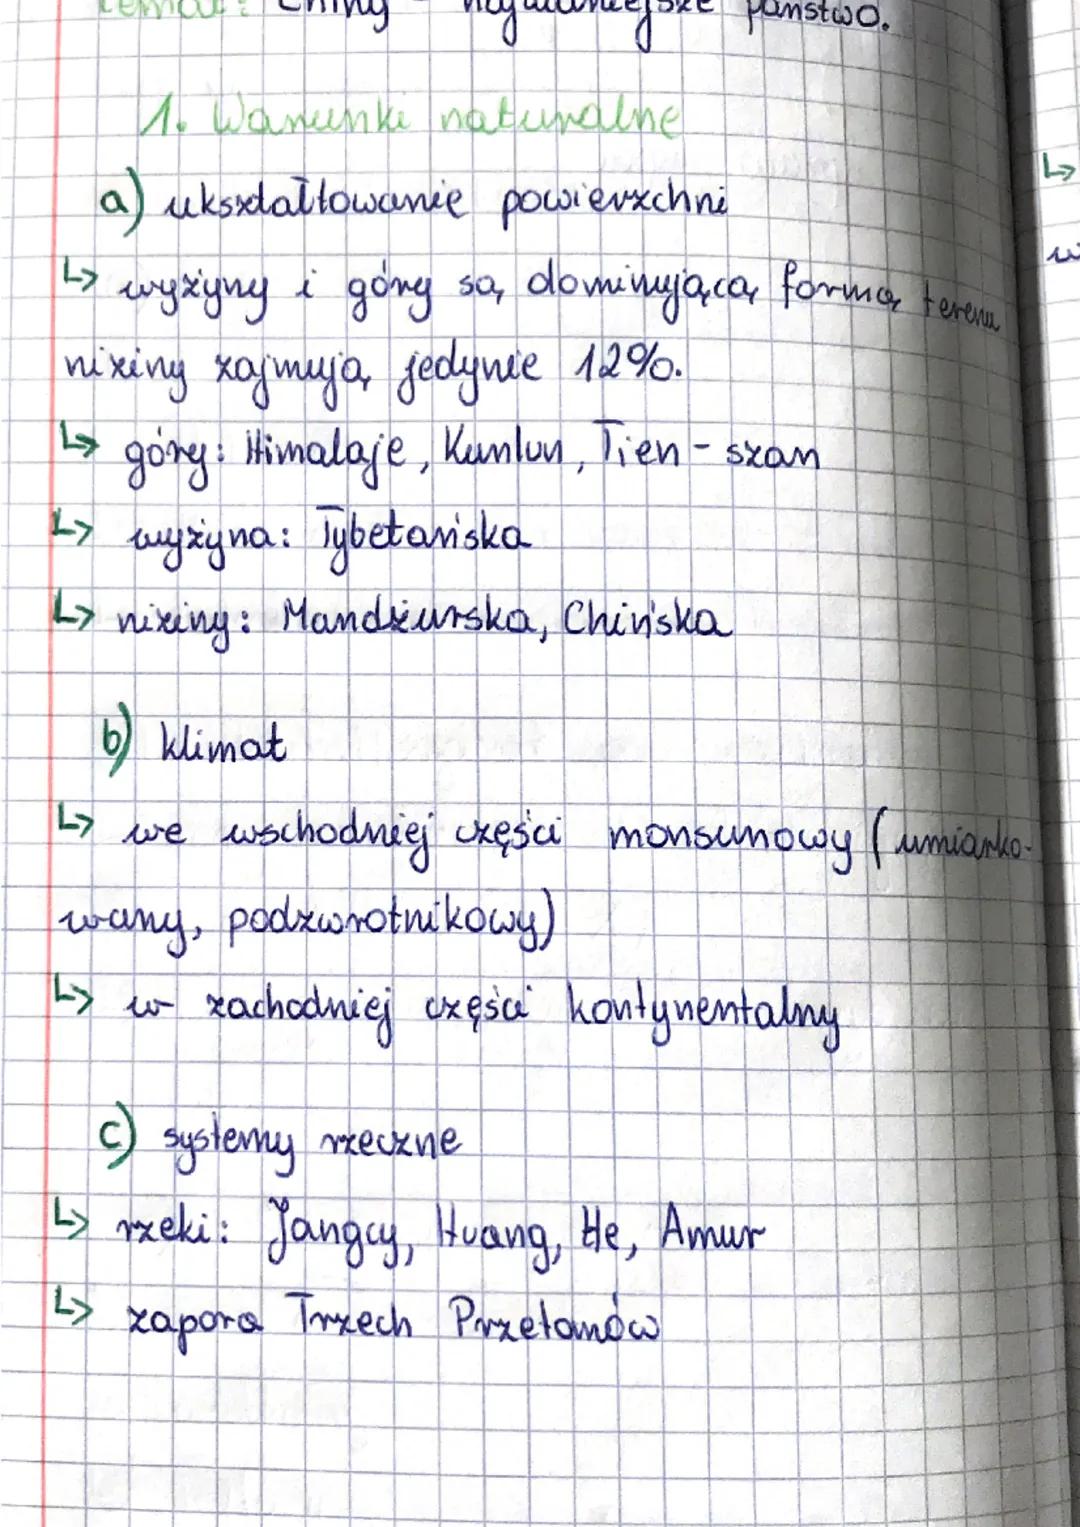 Temat: Chiny - najludniejsze państwo.
1. Warunki naturalne
a) ukształtowanie powierzchni
↳ wyżyny i góry są dominującą formą terenu
niziny zajmują jedynie 12%.
↳ góry: Himalaje, Kunlun, Tien-szan
↳ wyżyna: Tybetańska
↳ niziny: Mandżurska, Chińska
b) klimat
↳ we wschodniej części monsunowy (umiarko-
wany, podzwrotnikowy)
↳ w zachodniej części kontynentalny
c) systemy rzeczne
↳ rzeki: Jangcy, Huang, He, Amur
↳ zapora Trzech Przełomów